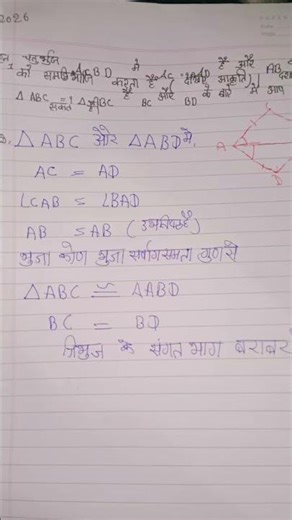 2026
चतुर्भुज ACBD में AC = AD है और AB
को समद्विभाजित करता है (देखिए आकृति)।
△ ABC ≅ △ABD है BC और BD के बारे में आप
△ ABC और △ABD में,
AC = AD
∠CAB = ∠BAD
AB = AB (उभयनिष्ठ है)
भुजा कोण भुजा सर्वांगसमता गुण से
△ABC ≅ △ABD
BC = BD
त्रिभुज के संगत भाग बराबर
A